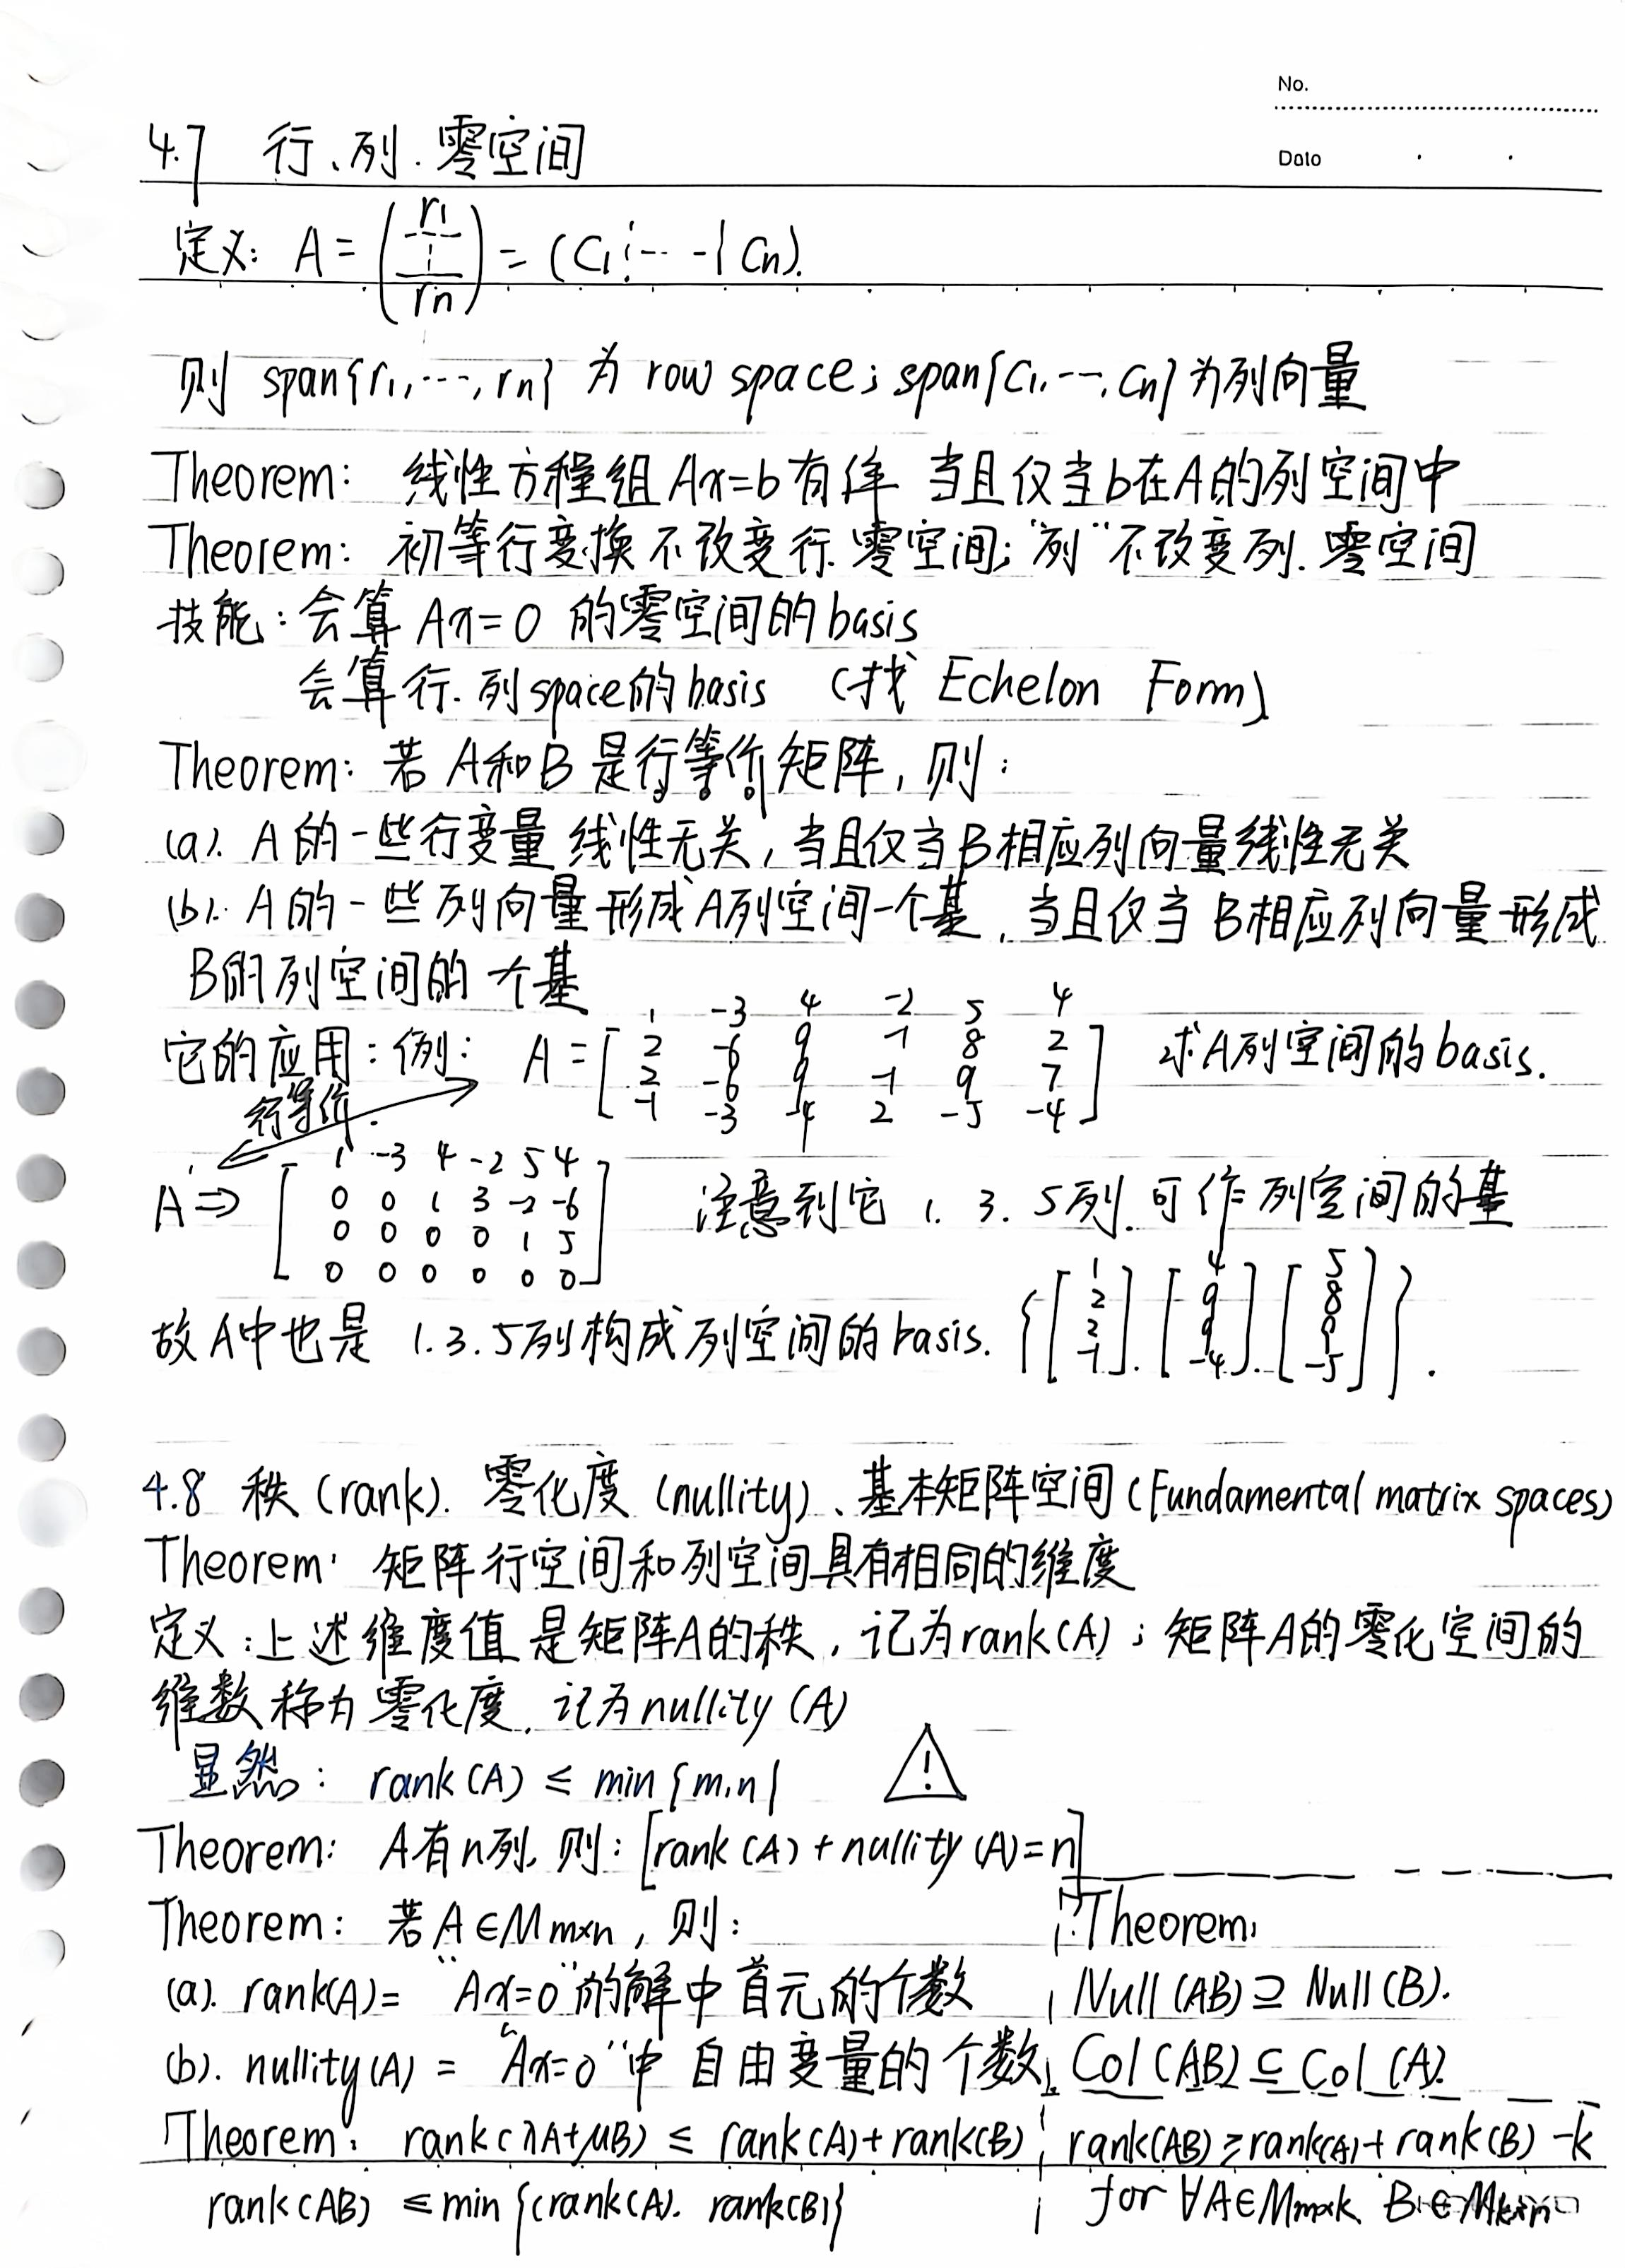 No.
Date
4.7 行、列.零空间
定义: A = (r1 ⋮ rn) = (C1 ¦ ⋯ | Cn).
则 span{r1,⋯,rn} 为 row space; span{C1,⋯,Cn} 为列向量
Theorem: 线性方程组Ax=b有解 当且仅当b在A的列空间中
Theorem: 初等行变换不改变行.零空间; "列"不改变列.零空间
技能: 会算 Ax=0 的零空间的basis
会算行.列space的basis (找 Echelon Form)
Theorem: 若A和B是行等价矩阵, 则:
(a). A的一些行变量线性无关, 当且仅当B相应列向量线性无关
(b). A的一些列向量形成A列空间一个基, 当且仅当B相应列向量形成
B的列空间的 个基
它的应用: 例: A = [ 求A列空间的basis.
1 -3 4 -2 5 4
2 -6 9 -1 8 2
2 -6 9 -1 9 7
-1 -3 -4 2 -5 -4 ]
行等价.
A ⇒ [ 注意到它 1. 3. 5列.可作列空间的基
1 -3 4 -2 5 4
0 0 1 3 -2 -6
0 0 0 0 1 5
0 0 0 0 0 0 ]
故A中也是 1.3.5列构成列空间的basis. {[1 2 2 -1]. [4 9 9 -4]. [5 8 9 -5]}.
4.8 秩(rank). 零化度(nullity)、基本矩阵空间(Fundamental matrix spaces)
Theorem: 矩阵行空间和列空间具有相同的维度
定义: 上述维度值是矩阵A的秩, 记为rank(A); 矩阵A的零化空间的
维数称为零化度, 记为nullity(A)
显然: rank(A) ≤ min{m,n} !
Theorem: A有n列, 则: [rank(A) + nullity(A)=n]
Theorem: 若A∈Mm×n, 则:
(a). rank(A)= "Ax=0"的解中首元的个数
(b). nullity(A) = "Ax=0"中 自由变量的个数
Theorem: rank(λA+μB) ≤ rank(A)+rank(B)
rank(AB) ≤ min{(rank(A). rank(B)}
Theorem:
Null(AB) ⊇ Null(B).
Col(AB) ⊆ Col(A).
rank(AB) ≥ rank(A) + rank(B) -k
for ∀A∈Mm×k B∈Mk×n